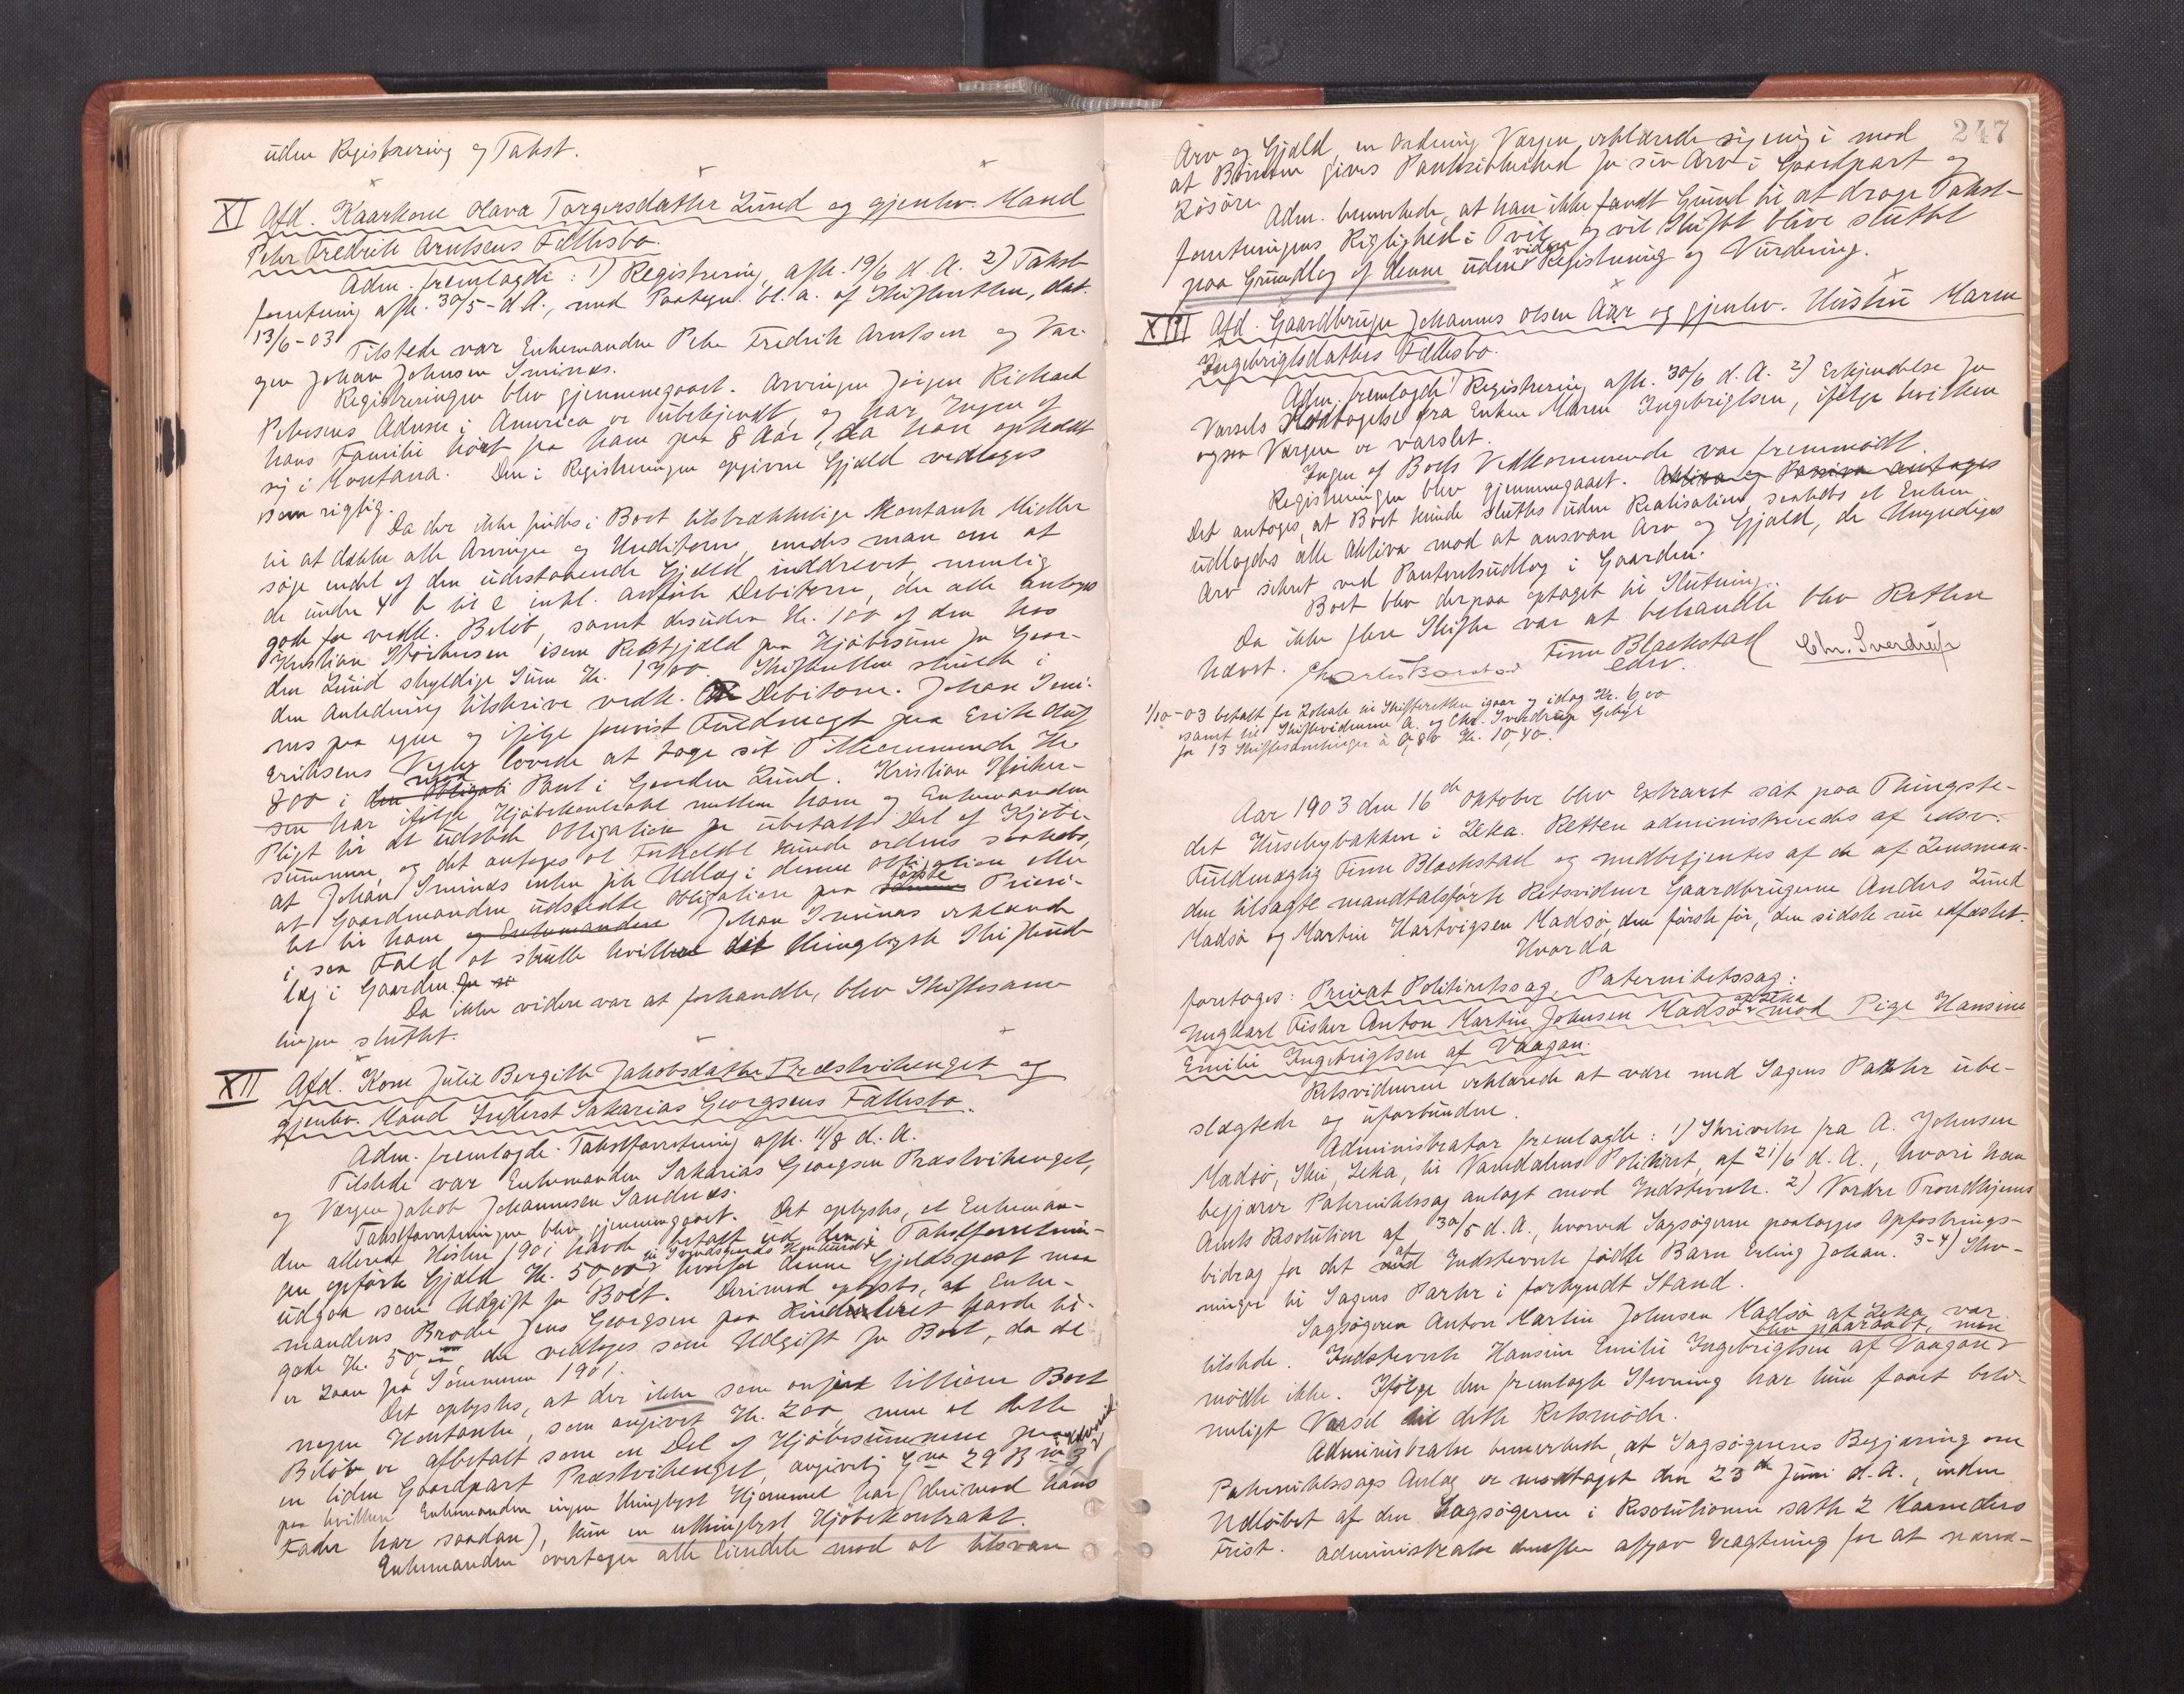 uden Registrering og Takst.
XI Afd. Kaarkone Olava Torgersdatter Lund og gjenlev. Mand
Peter Fredrik Arntsens Fællesbo.
Adm. fremlagde: 1) Registrering, afh. 19/6 d. A. 2) Takst
forretning afh. 30/5 d. A., med Paategn. bl. a. af Skifteretten, dat.
13/6-03
Tilstede var Enkemanden Peter Fredrik Arntsen og Vær-
gen Johan Johnsen Smines.
Registreringen blev gjennemgaaet. Arvingen Jørgen Richard
Petersens Adresse i America er ubekjendt, og har Ingen af
hans Familie hørt fra ham paa 8 Aar, da han opholdt
sig i Montana. Den i Registreringen opgivne Gjæld vedtoges
som rigtig.
Da der ikke findes i Boet tilstrækkelige Kontante Midler
til at dække alle Arvinger og Kreditorer, enedes man om at
søge endel af den udestaaende Gjæld inddrevet, nemlig
de under 4 b til e inkl. anførte Debitorer, der alle antoges
gode for vedk. Beløb, samt desuden Kr. 100 af den hos
Kristian Isørensen som Restgjæld paa Kjøbesum for Gaar-
den Lund skyldige Sum Kr. 1700. Skifteretten skulde i
den Anledning tilskrive vedk. Debitorer. Johan Smi-
nes paa egne og ifølge forevist Fuldmagt paa Erik Olaf
Eriksens Vegne lovede at tage sit Tilkommende Kr.
800 i den Obligati mod Pant i Gaarden Lund. Kristian
sen har ifølge Kjøbekontrakt mellem ham og Enkemanden
Pligt til at udstede Obligation for ubetalt Del af Kjøbe-
summen, og det antoges at Forholdet kunde ordnes saaledes,
at Johan Smines enten fik Udlæg i denne Obligation eller
at Gaardmanden udstedte Obligation paa første Priori-
tet til ham og Enkemanden Johan Smines erklærede
i saa Fald at skulle kvittere det thinglyste Skifteud-
læg i Gaarden.
Da ikke videre var at forhandle, blev Skiftesam-
lingen sluttet.
XII Afd. Kone Julie Bergitte Jakobsdatter Præstvikenget og
gjenlev. Mand Inderst Sakarias Georgsens Fællesbo.
Adm. fremlagde. Takstforretning afh. 11/8 d. A.
Tilstede var Enkemanden Sakarias Georgsen Præstvikenget,
og Værgen Jakob Johannesen Sandnes.
Takstforretningen blev gjennemgaaet. Det oplystes, at Enkeman-
den allerede Høsten 1901 havde betalt ud den i Takstforretnin-
gen opførte Gjæld Kr. 50,00 hvorfor denne Gjældspost maa
udgaa som Udgift for Boet. Derimod oplystes, at Enke-
mandens Broder Jens Georgsen paa havde til-
gode Kr. 50, der vedtoges som Udgift for Boet, da det
er Laan fra Sommeren 1901.
Det oplystes, at der ikke som anført tilhører Boet
nogen Kontanter, som angivet Kr. 200, men at dette
Beløb er afbetalt som en Del af Kjøbesummen paa
en liden Gaardpart Præstvikenget, angivelig Gno 29 Bno 3
paa hvilken Enkemanden ingen thinglyst Hjemmel har (derimod hans
Fader har saadan), kun en uthinglyst Kjøbekontrakt.
Enkemanden overtager alle Eiendele mod at tilsvare
247
Arv og Gjæld, en Ordning Værgen erklærede sig enig i mod
at Børnene gives Panthesikkerhed for sin Arv i Gaardpart og
Løsøre.
Adm. bemærkede, at han ikke fandt Grund til at drage Takst-
forretningens Rigtighed i Tvil, og vil Skiftet blive sluttet
paa Grundlag af denne uden videre Registrering og Vurdering.
XIII Afd. Gaardbruger Johannes Olsen Aar og gjenlev. Hustru Karen
Ingebrigtsdatters Fællesbo.
Adm. fremlagde 1) Registrering afh. 30/6 d. A. 2) Erkjendelse for
Varsels Modtagelse fra Enken Maren Ingebrigtsen, ifølge hvilken
ogsaa Værgen er varslet.
Ingen af Boets Vedkommende var fremmødt.
Registreringen blev gjennemgaaet. Aktiva og Passiva antages
Det antoges, at Boet kunde sluttes uden Realisation saaledes at Enken
udlagdes alle Aktiva mod at ansvare Arv og Gjæld, de Umyndiges
Arv sikret ved Panteretsudlæg i Gaarden.
Boet blev derpaa optaget til Slutning.
Da ikke flere Skifter var at behandle blev Retten
hævet. Finn Blackstad Chr. Sverdrup
edsv.
1/10-03 betalt for Lokale til Skifteretten igaar og idag Kr. 6,00
samt til Skiftevidnerne A. og Chr. Sverdrup Gebyr
for 13 Skiftesamlinger à 0,80 Kr. 10,40.
Aar 1903 den 16de Oktober blev Extraret sat paa Thingste-
det Husebybakken i Leka. Retten administreredes af edsv.
Fuldmægtig Finn Blackstad og medbetjentes af de af Lensman-
den tilsagte mandtalsførte Retsvidner Gaardbrugerne Anders Lund
Madsø og Martin Hartvigsen Madsø, den første før, den sidste nu edfæstet.
Hvorda
foretoges: Privat Politiretssag, Paternitetssag:
Ungkarl Fisker Anton Martin Johnsen Madsø af Leka mod Pige Hansine
Emilie Ingebrigtsen af Vaagan.
Retsvidnerne erklærede at være med Sagens Parter ube-
slægtede og uforbundne.
Administrator fremlagde: 1) Skrivelse fra A. Johnsen
Madsø, Skei, Leka, til Namdalens Politiret, af 21/6 d. A., hvori han
begjærer Paternitetssag anlagt mod Indstevnte. 2) Nordre Trondhjems
Amts Resolution af 30/5 d. A., hvorved Sagsøgeren paalægges Opfostrings-
bidrag for det af Indstevnte fødte Barn Erling Johan. 3-4) Stev-
ninger til Sagens Parter i forkyndt Stand.
Sagsøgeren Anton Martin Johnsen Madsø af Leka var
tilstede. Indstevnte Hansine Emilie Ingebrigtsen af Vaagan blev paaraabt, men
mødte ikke. Ifølge den fremlagte Stevning har hun faaet beti-
meligt Varsel til dette Retsmøde.
Administrator bemærkede, at Sagsøgerens Begjæring om
Paternitetssags Anlæg er modtaget den 23de Juni d. A., inden
Udløbet af den Sagsøgeren i Resolutionen satte 2 Maaneders
Frist. Administrator derefter afgav Vragtning for at nærvæ-